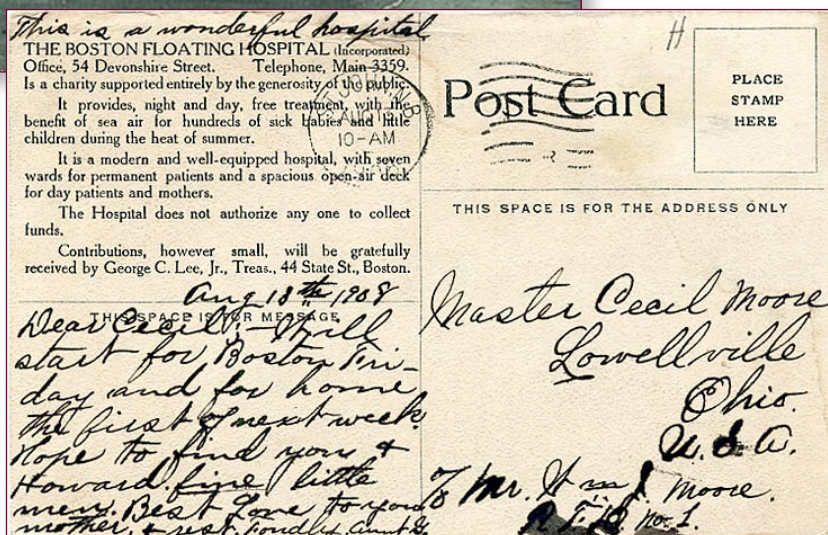 This is a wonderful hospital
THE BOSTON FLOATING HOSPITAL (Incorporated)
Office, 54 Devonshire Street. Telephone, Main 3359.
Is a charity supported entirely by the generosity of the public.
It provides, night and day, free treatment, with the
benefit of sea air for hundreds of sick babies and little
children during the heat of summer.
It is a modern and well-equipped hospital, with seven
wards for permanent patients and a spacious open-air deck
for day patients and mothers.
The Hospital does not authorize any one to collect
funds.
Contributions, however small, will be gratefully
received by George C. Lee, Jr., Treas., 44 State St., Boston.
Aug 18th 1908
THIS SPACE IS FOR MESSAGE
Dear Cecil:- I will
start for Boston Fri-
day and for home
the first of next week.
Hope to find you &
Howard fine little
men. Best Love to your
mother, & rest. Fondly, Aunt
H
AUG
10-AM
Post Card
PLACE
STAMP
HERE
THIS SPACE IS FOR THE ADDRESS ONLY
Master Cecil Moore
Lowellville
Ohio.
U.S.A.
c/o Mr. Wm Moore.
R.F.D. No. 1.